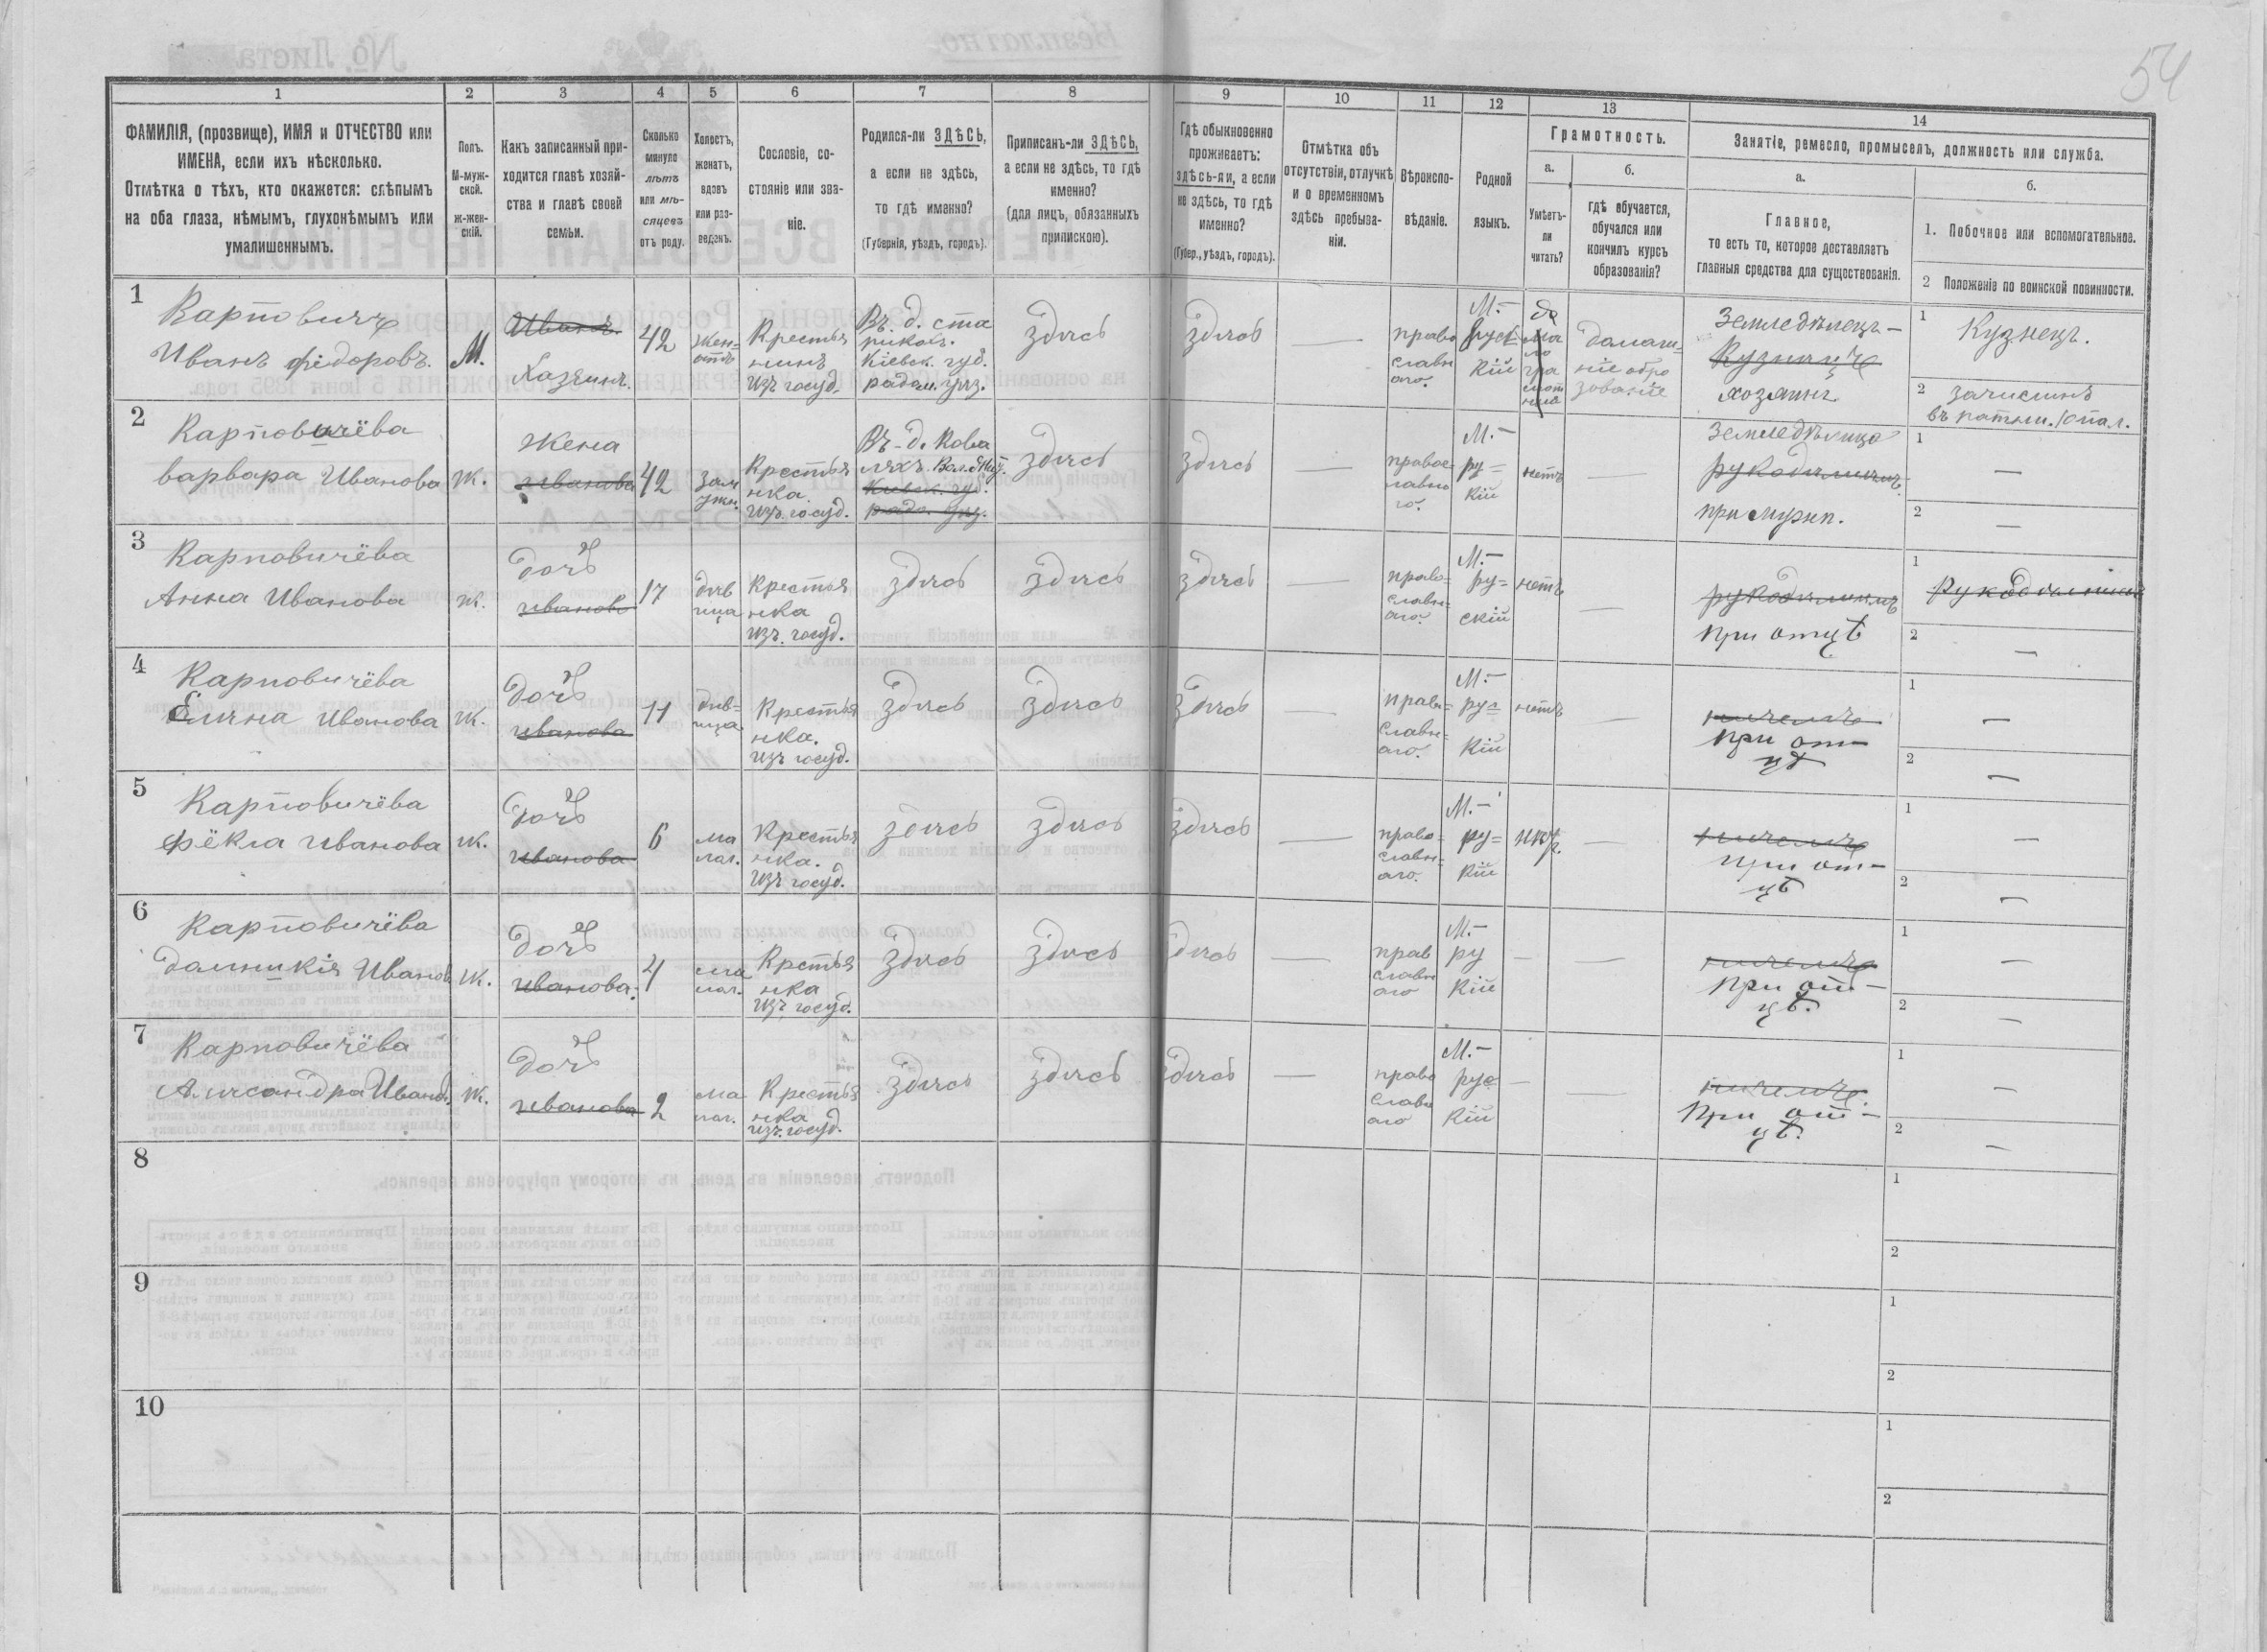 54
1
2
3
4
5
6
7
8
9
10
11
12
13
14
ФАМИЛІЯ, (прозвище), ИМЯ и ОТЧЕСТВО или
ИМЕНА, если ихъ нѣсколько.
Отмѣтка о тѣхъ, кто окажется: слѣпымъ
на оба глаза, нѣмымъ, глухонѣмымъ или
умалишеннымъ.
Полъ.
М-муж-
ской.
Ж-жен-
скій.
Какъ записанный при-
ходится главѣ хозяй-
ства и главѣ своей
семьи.
Сколько
минуло
лѣтъ
или мѣ-
сяцевъ
отъ роду.
Холостъ,
женатъ,
вдовъ
или раз-
веденъ.
Сословіе, со-
стояніе или зва-
ніе.
Родился-ли ЗДѢСЬ,
а если не здѣсь,
то гдѣ именно?
(Губернія, уѣздъ, городъ).
Приписанъ-ли ЗДѢСЬ,
а если не здѣсь, то гдѣ
именно?
(для лицъ, обязанныхъ
припискою).
Гдѣ обыкновенно
проживаетъ:
здѣсь-ли, а если
не здѣсь, то гдѣ
именно?
(Губер., уѣздъ, городъ).
Отмѣтка объ
отсутствіи, отлучкѣ
и о временномъ
здѣсь пребыва-
ніи.
Вѣроиспо-
вѣданіе.
Родной
языкъ.
Грамотность.
а.
Умѣетъ-
ли
читать?
б.
гдѣ обучается,
обучался или
кончилъ курсъ
образованія?
Занятіе, ремесло, промыселъ, должность или служба.
а.
Главное,
то есть то, которое доставляетъ
главныя средства для существованія.
б.
1. Побочное или вспомогательное.
2 Положеніе по воинской повинности.
1
Карповичъ
Иванъ Фёдоровъ.
М.
Иванъ
Хозяинъ.
42
жен=
атъ
Крестья
нинъ
изъ госуд.
Въ. д. ста
рикахъ.
Кіевск. губ.
радом. уѣз.
здѣсь
здѣсь
—
право
славн
аго.
М.—
руск
кій
да
мало
гра
мот
ные
домаш=
ніе обра
зованіе
Земледѣлецъ—
Кузницъ
хозяинъ
1
Кузнецъ.
2
зачислинъ
2
Карповичёва
варвара Иванова
Ж.
Жена
Иванова
42
зам
ужн.
Крестья
нка.
изъ. госуд.
Въ- д. Кова
Кіевск. гу.
радо. уѣз.
здѣсь
здѣсь
—
правос=
лавно
го.
М.—
ру=
кій
нетъ
—
Земледѣлица
рукодѣлницъ
при мужи.
1 —
2 —
3
Карповичёва
Анна Иванова
Ж.
дочь
Иванова
17
дѣв
ица
Крестья
нка
изъ. госуд.
здѣсь
здѣсь
здѣсь
—
право=
славн=
аго.
М.—
ру=
скій
нетъ
—
рукодѣлницъ
при отцѣ
1
2 —
4
Карповичёва
Елина Иванова
Ж.
дочь
Иванова
11
дѣв=
ица
Крестья
нка.
изъ госуд.
здѣсь
здѣсь
здѣсь
—
право=
славн=
аго.
М.—
ру=
кій
нетъ
—
ничемъ
при от—
цѣ
1 —
2 —
5
Карповичёва
Фёкла Иванова
Ж.
дочь
Иванова
6
ма
лол.
Крестья
нка.
изъ госуд.
здѣсь
здѣсь
здѣсь
—
право=
славн=
аго.
М.—
ру=
кій
—
ничемъ
при от—
цѣ
1 —
2 —
6
Карповичёва
домникія Иванов.
Ж.
дочь
Иванова.
4
ма
лол.
Крстья
нка
изъ госуд.
здѣсь
здѣсь
здѣсь
—
прав
славн
аго
М.—
ру
кій
—
—
ничемъ
при от—
цѣ.
1 —
2 —
7
Карповичёва
Алисандра Иванов.
Ж.
дочь
Иванова
2
ма
лол.
Крестья
нка
изъ. госуд.
здѣсь
здѣсь
здѣсь
—
право
славн
аго
М.—
рус
кій
—
—
ничемъ.
при от—
цѣ.
1 —
2 —
8
1
2
9
1
2
10
1
2